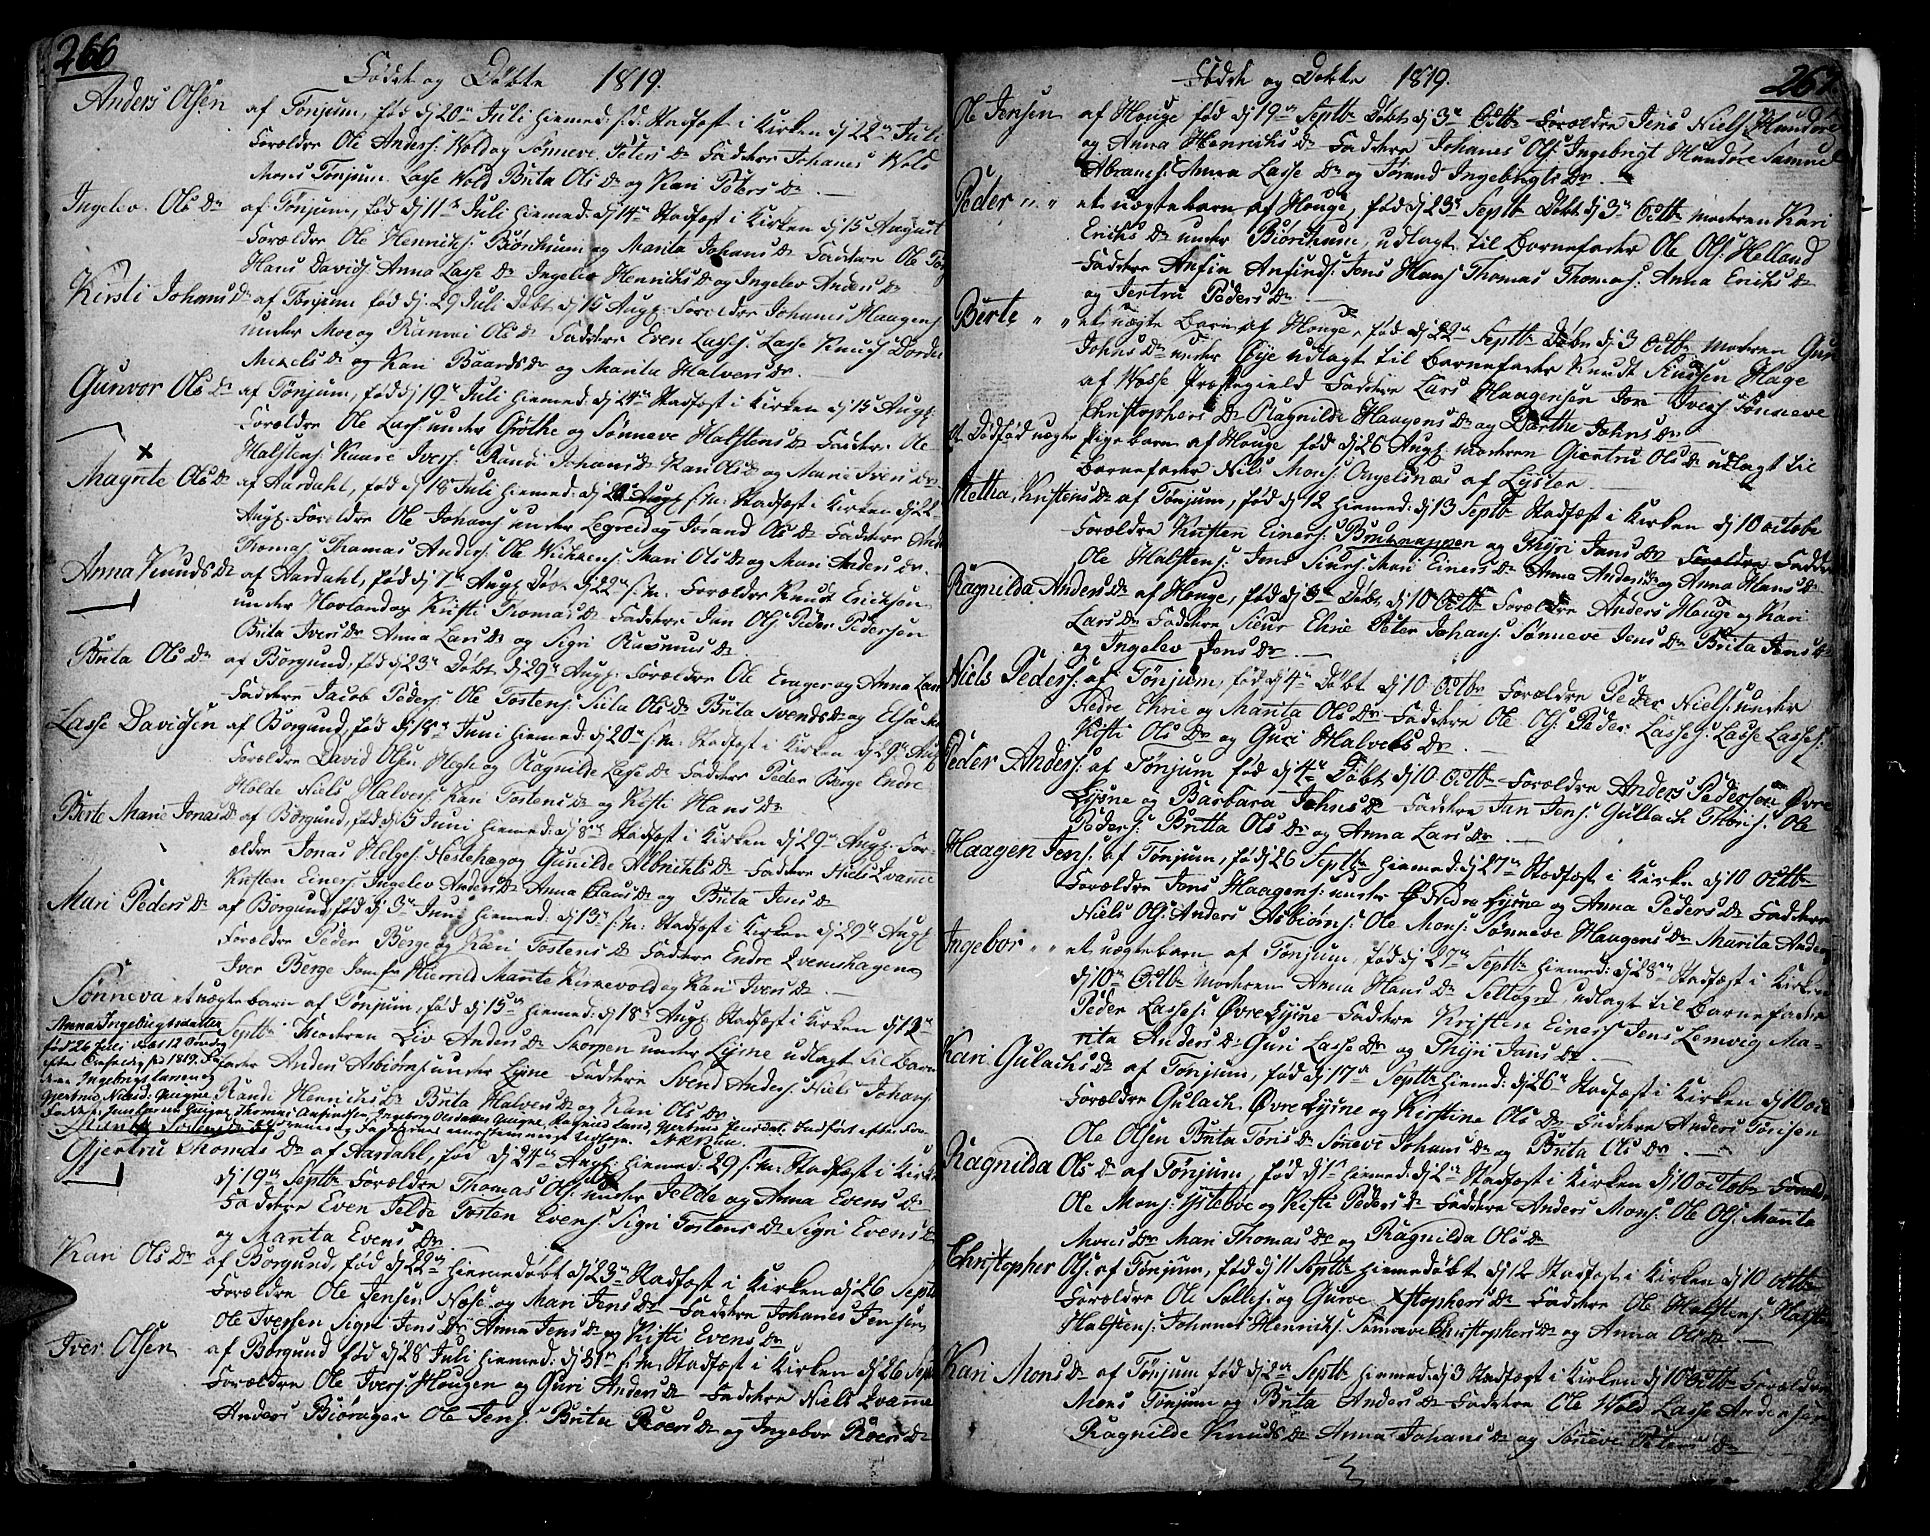 266
Fødte og Døbte 1819.
Anders Olsen af Tønjum, fød dj 20de Juli hiemed: s: d: Stadfæst i Kirken dj 22de Juli
Forældre Ole Anders: Wold og Sønneve Peters Dr Faddere Johanes Wold
Mons Tønjum Lasse Wold Brita Ols Dr og Kari Peters Dr
Ingelev Ols Dr af Tønjum, fød dj 11te Juli hiemed: dj 14de Stadfæst i Kirken dj 15 August
Forældre Ole Henrichs: Biørkum og Marita Johans Dr Faddere Ole
Hans Davids: Anna Lasse Dr Ingelev Henrichs Dr og Ingelev Anders Dr
Kirsti Johans Dr af Tønjum fød dj 29 Juli Døbt dj 15 Aug: Forældre Johanes Haagens
under Moe og Ranvei Ols Dr Faddere Even Lasses: Lasse Knuds: Dorde
Mikels Dr og Kari Baards Dr og Marita Halvers Dr
Gunvor Ols Dr af Tønjum, fød dj 19de Juli hiemed: dj 24de Stadfæst i Kirken dj 15 Aug:
Forældre Ole Lass: under Grøthe og Sønneve Halstens Dr Faddere Ole
Halstens: Kaare Ivers: Randi Johans Dr Kari Ols Dr og Mari Ivers Dr
Magrite Ols Dr af Aardahl, fød dj 18 Juli hiemed: dj Aug: s: m: Stadfæst i Kirken dj 22
Aug: Forældre Ole Johans: under Legreid og Jorand Ols Dr Faddere
Thomas: Thomas Anders: Ole Mari Ols Dr og Mari Anders Dr
Anna Knuds Dr af Aardahl, fød dj 7de Aug: Døbt dj 22de s: m: Forældre Knud Ericksen
under Hovland og Kirsti Thomas Dr Faddere Jan Ols: Peder Pedersen
Brita Ivers Dr Anna Lars Dr og Sigri Rasmus Dr
Brita Ols Dr af Borgund, fød dj 23de Døbt dj 29de Aug: Forældre Ole og Anna Lars
Faddere Jacob Peders: Ole Tostens: Sila Ols Dr Brita Svends Dr og Elsa
Lasse Davidsen af Borgund, fød dj 18de Juni hiemed: dj 20de s: m: Stadfæst i Kirken dj 29de Aug
Forældre David Olsen Hegh og Ragnilde Lasse Dr Faddere Peder Berge Endre
Holde Niels Halvers: Kari Tostens Dr og Kirsti Hans Dr
Berte Marie Jonas Dr af Borgund, fød dj 5 Juni hiemed: dj 8de Stadfæst i Kirken dj 29de Aug: For-
ældre Jonas Helges: Nesteheg og Gunilde Albrichts Dr Faddere Niels Qvamme
Kristen Einers: Ingelev Anders Dr Anna Claus Dr og Brita Jens Dr
Mari Peders Dr af Borgund, fød dj 3de Juni hiemed: dj 13de s: m: Stadfæst i Kirken dj 29de Aug:
Forældre Peder Berge og Kari Tostens Dr Faddere Endre
Iver Berge Marite Kirkevold og Kari Ivers Dr
Sønneva et uægte barn af Tønjum, fød dj 15de hiemed: dj 18de Aug: Stadfæst i Kirken dj 12te
Septbr Moderen Liv Anders Dr Skorpen under Lysne udlagt til Barne-
fader Anders Asbiørns: under Lysne Faddere Svend Anders: Niels Johans:
Randi Henrichs Dr Brita Halvers Dr og Kari Ols Dr
Anna Ingebrigtsdatter
fød 26 Juli døbt 12 Søndag
efter Trefoldig: 1819. Fo
dere Ingebrigt og
Giertrue Nielsd:
Gjertru Thomas Dr af Aardahl, fød dj 24de Aug: hiemed: 29 s: m: Stadfæst i Kirke
dj 19de Septbr Forældre Thomas Ols: under Jelde og Anna Evens Dr
Faddere Even Jelde Tosten Evens: Sigri Tostens Dr Sigri Evens Dr
og Marita Evens Dr
Kari Ols Dr af Borgund, fød dj 22de hiemedøbt dj 23de Stadfæst i Kirken dj 26 Septb
Forældre Ole Jensen Næse og Mari Jens Dr Faddere Johanes Jensen
Ole Iversen Sigri Jens Dr Anna Jens Dr og Kisti Evens Dr
Iver Olsen af Borgund fød dj 28 Juli hiemed: dj 31te s: m: Stadfæst i Kirken dj 26 Sept
Forældre Ole Ivers: Hougen og Guri Anders Dr Faddere Niels Qvamme
Anders Biørager Ole Jens: Brita Roers Dr og Ingebor Roers Dr
267
Fødde og Døbte 1819.
Ole Jensen af Houge fød dj 19de Septbr Døbt dj 3de Octbr Forældre Jens Niels: Hundere
og Anna Henrichs Dr Faddere Johanes Ols: Ingebrigt Hundere Samuel
Abrams: Anna Lasse Dr og Jørand Ingebrigts Dr
Peder " " et uægte barn af Houge, fød dj 23de Septbr Døbt dj 3de Octbr moderen Kari
Erichs Dr under Biørkum, udlagt til Barnefader Ole Ols: Helland
Faddere Anfin Anfinds: Jens Hans: Thomas Thomas: Anna Erichs Dr
og Jertru Peders Dr
Berte " " et uægte Barn af Houge, fød dj 22de Septbr Døbt dj 3 Octbr moderen Guri
Johns Dr under Øye udlagt til Barnefader Knudt Knudsen Hage
af Wosse Præstegield Faddere Lars Haagensen Jon Ivers: Sønneve
Christophers Dr Ragnilde Haagens Dr og Dorthe Johns Dr
et Dødfød uægte Pige barn af Houge fød dj 26 Aug: moderen Giertru Ols Dr udlagt til
Barnefader Niels Mons: Ongelsnæs af Lyster
Metha Kristens Dr af Tønjum, fød dj 12 hiemed: dj 13 Septbr Stadfæst i Kirken dj 10 octobr
Forældre Kristen Einers: Brugnappen og Thyri Jans Dr Forældre Fadder
Ole Halstens: Jens Siurs: Mari Einers Dr Anna Anders Dr og Anna Hans Dr
Ragnilda Anders Dr af Houge, fød dj 3de Døbt dj 10 Octbr Forældre Anders Houge og Kari
Lars Dr Faddere Siur Ehrie Peter Johans: Sønneve Jens Dr Brita Jens Dr
og Ingelev Jens Dr
Niels Peders: af Tønjum, fød dj 4de Døbt dj 10 Octbr Forældre Peder Niels: under
Nedre Ehrie og Marita Ols Dr Faddere Ole Ols: Peder Lasses: Lasse Lasses:
Kisti Ols Dr og Guri Halvers Dr
Peder Anders: af Tønjum fød dj 4de Døbt dj 10 Octbr Forældre Anders Pedersen Øvre
Lysne og Barbara Johns Dr Faddere Jan Jens: Gullach Thoris: Ole
Peders: Britta Ols Dr og Anna Lars Dr
Haagen Jens: af Tønjum, fød dj 26 Septbr hiemed: dj 27de Stadfæst i Kirke dj 10 octbr
Forældre Jens Haagens: under Nedre Lysne og Anna Peders Dr Faddere
Niels Ols: Anders Asbiørns: Ole Mons: Sønneve Haagens Dr Marita Anders
Ingebor " " et uægte barn af Tønjum, fød dj 27de Septbr hiemed: dj 28de Stadfæst i Kirken
dj 10de Octbr moderen Anna Hans Dr Seltøgrd, udlagt til Barnefader
Peder Lasses: Øvre Lysne Faddere Kristen Einers: Jens Lemvig Ma-
rita Anders Dr Guri Lasse Dr og Thyri Jans Dr
Kari Gulachs Dr af Tønjum, fød dj 17de Septbr hiemed: dj 26de Stadfæst i Kirken dj 10 oct
Forældre Gulach Øvre Lysne og Kirstine Ols Dr Faddere Anders Torisen
Ole Olsen Brita Toris Dr Sønneve Johans Dr og Brita Ols Dr
Ragnilda Ols Dr af Tønjum, fød dj 1te hiemed: dj 2de Stadfæst i Kirken dj 10 octobr Foræld
Ole Mons: Ystebøe og Kisti Peders Dr Faddere Anders Mons: Ole Ols: Marita
Mons Dr Mari Thomas Dr og Ragnilda Ols Dr
Christopher Ols: af Tønjum, fød dj 11 Septbr hiemedøbt dj 12 Stadfæst i Kirken dj 10 octbr
Forældre Ole og Gurve Xstophers Dr Faddere Ole Halstens: Halsten
Halstens: Johanes Henrichs: Sønneve Christophers Dr og Anna Ols Dr
Kari Mons Dr af Tønjum fød dj 2de Septbr hiemed: dj 3 Stadfæst i Kirken dj 10 Octbr Forældre
Mons Tønjum og Brita Anders Dr Faddere Ole Wold Lasse Andersen
Ragnilde Knuds Dr Anna Johans Dr og Sønneve Peters Dr